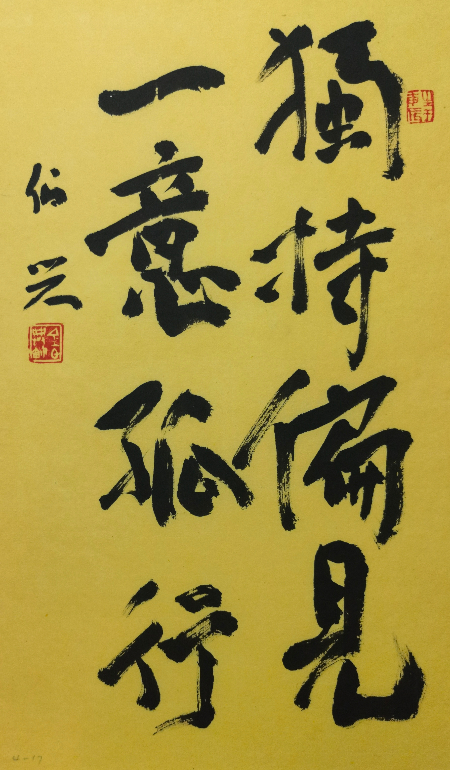 獨持偏見
一意孤行